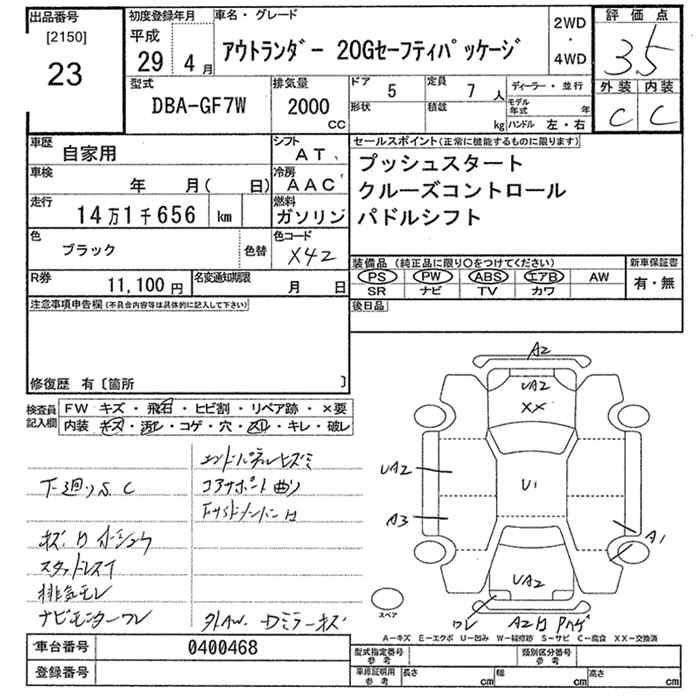 出品番号
[2150]
23
初度登録年月
平成
29 4 月
車名・グレード
アウトランダー 20Gセーフティパッケージ
2WD
・
4WD
評価点
3.5
外装 内装
C C
型式
DBA-GF7W
排気量
2000
CC
ドア
5
定員
7 人
形状
積載
kg
ディーラー・並行
モデル年式 年
ハンドル 左・右
車歴
自家用
シフト
AT
車検
年 月( 日)
冷房
AAC
走行
14万1千656 km
燃料
ガソリン
色
ブラック
色替
色コード
X42
R券
11,100 円
名変通知期限
月 日
セールスポイント(正常に機能するものに限ります)
プッシュスタート
クルーズコントロール
パドルシフト
装備品 (純正品に限り○をつけてください)
PS PW ABS エアB AW
SR ナビ TV カワ
新車保証書
有・無
後日品
注意事項申告欄(不具合内容等は具体的に記入して下さい)
修復歴 有〔箇所 〕
検査員
記入欄
FW キズ・飛石・ヒビ割・リペア跡・×要
内装 キズ・汚レ・コゲ・穴・スリ・キレ・破レ
エンドパネルヒズミ
下廻りS.C
コアサポート曲り
キズ、凹 小ショウ
スタッドレスT
排気モレ
ナビモニターワレ
外AW.
ミラーキズ
A2
UA2
XX
UA2
U1
A3
A1
UA2
ワレ
A2凹
スペア
A-キズ E-エクボ U-凹み W-補修跡 S-サビ C-腐食 XX-交換済
車台番号
0400468
登録番号
型式指定番号
参考
類別区分番号
参考
車庫証明用
参考
長さ cm
幅 cm
高さ cm